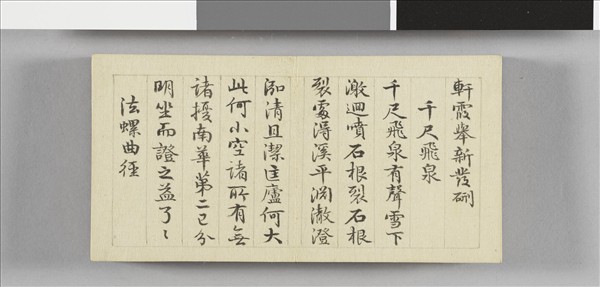 軒霞舉新發硎
千尺飛泉
千尺飛泉有聲雪下
激迴噴石根裂石根
裂處淂溪平渊澈澄
泓清且潔匡廬何大
此何小空諸所有無
諸擾南華第二已分
明坐而證之益了〻
法螺曲徑